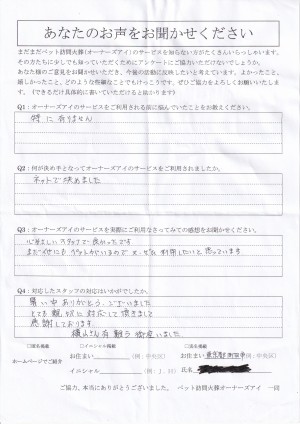 あなたのお声をお聞かせください
まだまだペット訪問火葬(オーナーズアイ)のサービスを知らない方がたくさんいらっしゃいます。
その方たちに少しでも知っていただくためにアンケートにご協力いただけないでしょうか。
あなた様のご意見をお聞かせいただき、今後の活動に反映したいと考えています。よかったこと、
嬉しかったこと、どのようなことでもかまいません。ぜひご協力をよろしくお願いいたします。
(できるだけ具体的に書いていただけると助かります)
Q1:オーナーズアイのサービスをご利用される前に悩んでいたことをお教えください。
特に有りません
Q2:何が決め手となってオーナーズアイのサービスをご利用されましたか。
ネットで決めました
Q3:オーナーズアイのサービスを実際にご利用なさってみての感想をお聞かせください。
心優しいスタッフで良かったです
まだ他にも
利用したいと思っています
Q4:対応したスタッフの対応はいかがでしたか。
暑い中ありがとうございました
とても親切に対応して頂きまして
感謝しております。
横山さん有難う御座いました
□匿名掲載 □イニシャル掲載 □氏名掲載
ホームページでご紹介 お住まい (例:中央区) お住まい 東京都 (例:中央区)
イニシャル (例:J.H) 氏名
ご協力、本当にありがとうございました。 ペット訪問火葬オーナーズアイ 一同